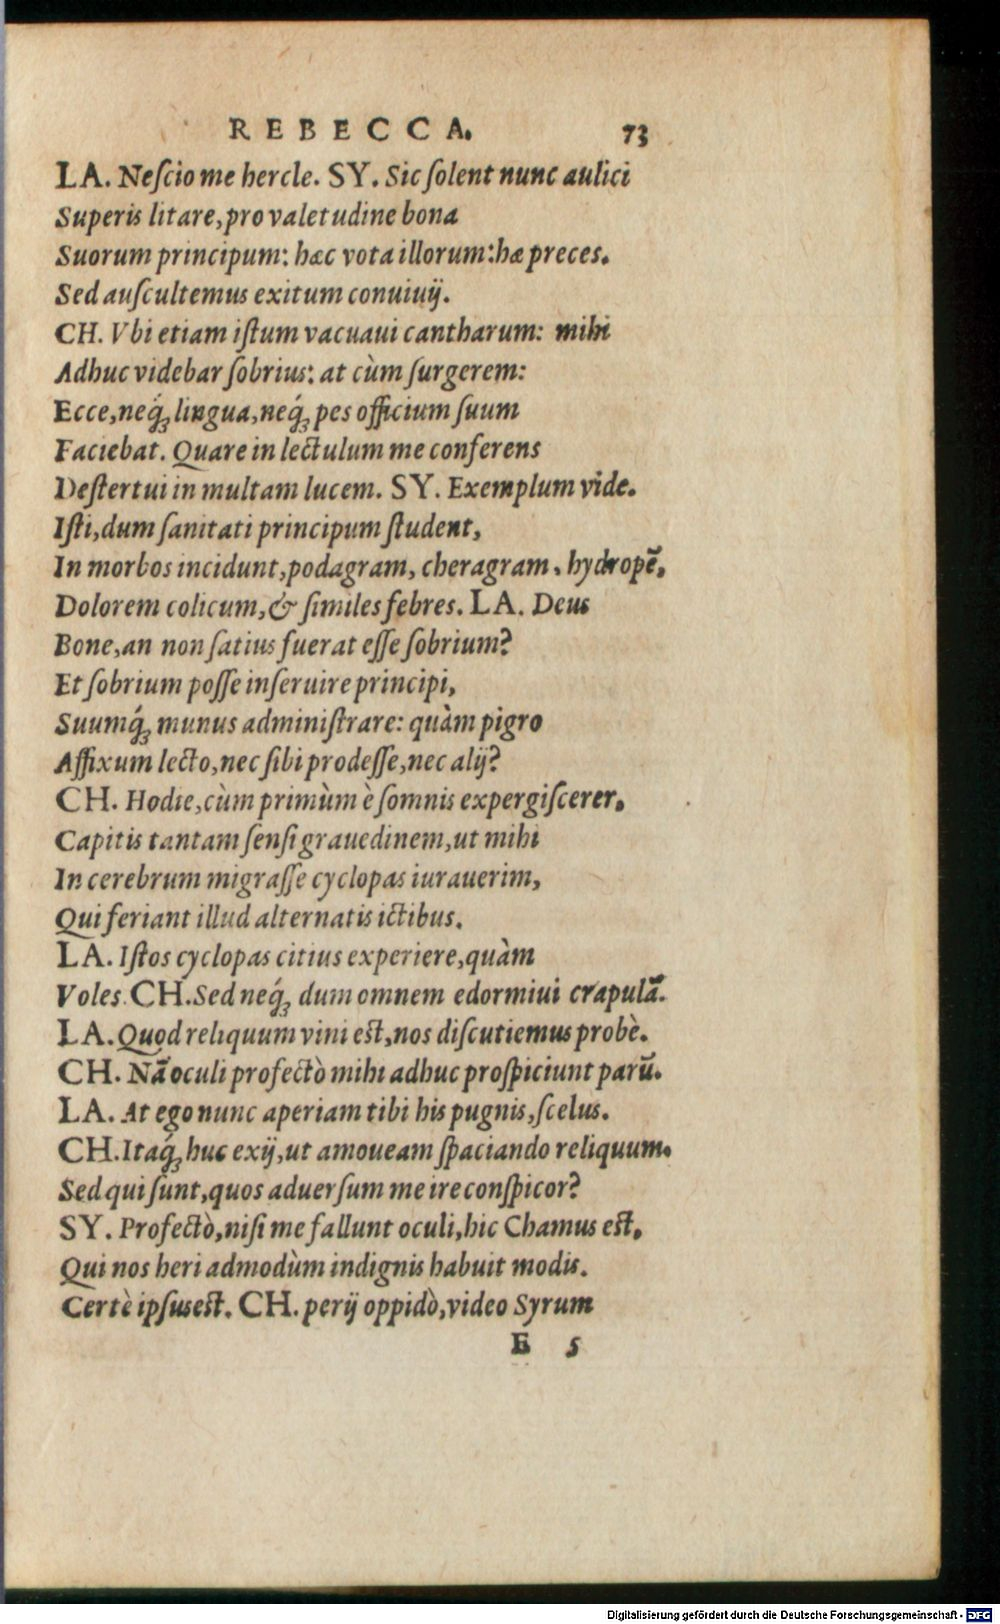 REBECCA. 73
LA. Neſcio me hercle. SY. Sic ſolent nunc aulici
Superis litare, pro valetudine bona
Suorum principum: hæc vota illorum: hæ preces.
Sed auſcultemus exitum conuiuij.
CH. Vbi etiam iſtum vacuaui cantharum: mihi
Adhuc videbar ſobrius: at cùm ſurgerem:
Ecce, neq́ꝫ lingua, neq́ꝫ pes officium ſuum
Faciebat. Quare in lectulum me conferens
Deſtertui in multam lucem. SY. Exemplum vide.
Iſti, dum ſanitati principum ſtudent,
In morbos incidunt, podagram, cheragram, hydropẽ,
Dolorem colicum, & ſimiles febres. LA. Deus
Bone, an non ſatius fuerat eſſe ſobrium?
Et ſobrium poſſe inſeruire principi,
Suumq́ꝫ munus adminiſtrare: quàm pigro
Affixum lecto, nec ſibi prodeſſe, nec alij?
CH. Hodie, cùm primùm è ſomnis expergiſcerer,
Capitis tantam ſenſi grauedinem, ut mihi
In cerebrum migraſſe cyclopas iurauerim,
Qui feriant illud alternatis ictibus.
LA. Iſtos cyclopas citius experiere, quàm
Voles. CH. Sed neq́ꝫ dum omnem edormiui crapulã.
LA. Quod reliquum vini eſt, nos diſcutiemus probè.
CH. Nã oculi profectò mihi adhuc proſpiciunt parũ.
LA. At ego nunc aperiam tibi his pugnis, ſcelus.
CH. Itaq́ꝫ huc exij, ut amoueam ſpaciando reliquum.
Sed qui ſunt, quos aduerſum me ire conſpicor?
SY. Profectò, niſi me fallunt oculi, hic Chamus eſt,
Qui nos heri admodùm indignis habuit modis.
Certè ipſus eſt. CH. perij oppidò, video Syrum
E 5
Digitalisierung gefördert durch die Deutsche Forschungsgemeinschaft - DFG